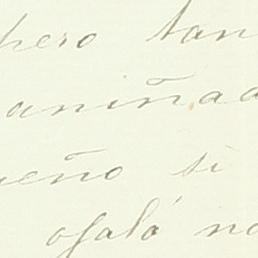 pero tan
aniñad
ueño si
ojalá no